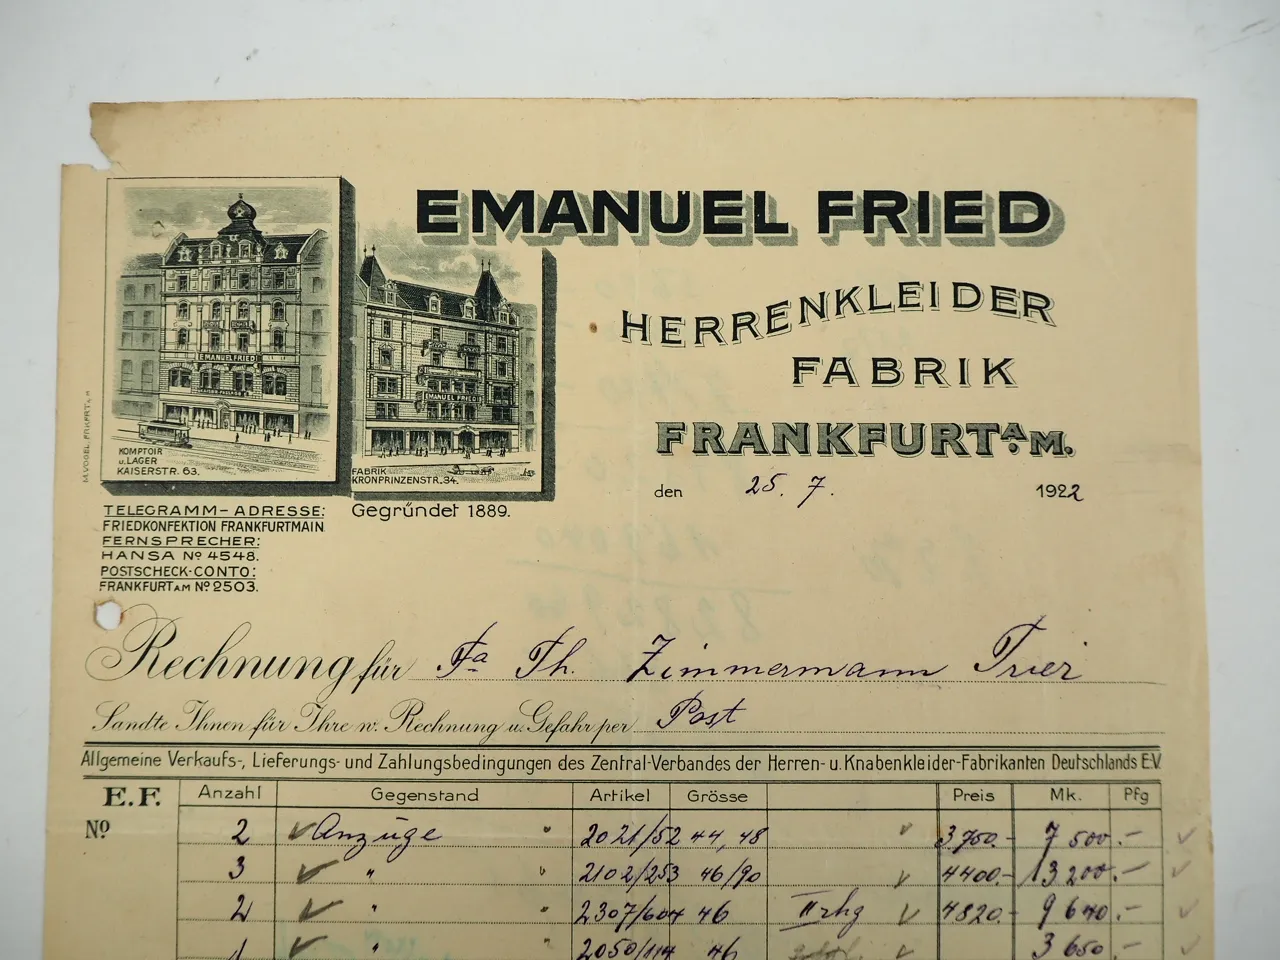 EMANUEL FRIED
HERRENKLEIDER
FABRIK
FRANKFURT A. M.
den 25. 7. 1922
EMANUEL FRIED
KOMPTOIR
u. LAGER
KAISERSTR. 63.
EMANUEL FRIED
FABRIK
KRONPRINZENSTR. 34.
Gegründet 1889.
TELEGRAMM-ADRESSE:
FRIEDKONFEKTION FRANKFURTMAIN
FERNSPRECHER:
HANSA No 4548.
POSTSCHECK-CONTO:
FRANKFURT AM No 2503.
Rechnung für Fa Th. Zimmermann Trier
Sandte Ihnen für Ihre w. Rechnung u. Gefahr per Post
Allgemeine Verkaufs-, Lieferungs- und Zahlungsbedingungen des Zentral-Verbandes der Herren- u. Knabenkleider-Fabrikanten Deutschlands E.V.
E.F. Anzahl Gegenstand Artikel Grösse Preis Mk. Pfg
No 2 Anzüge 2021/52 44, 48 3750.- 7 500.-
3 " 2102/253 46/90 4400.- 13 200.-
2 " 2307/604 46 II rhg 4820.- 9 640.-
1 " 2050/114 46 3 650.-